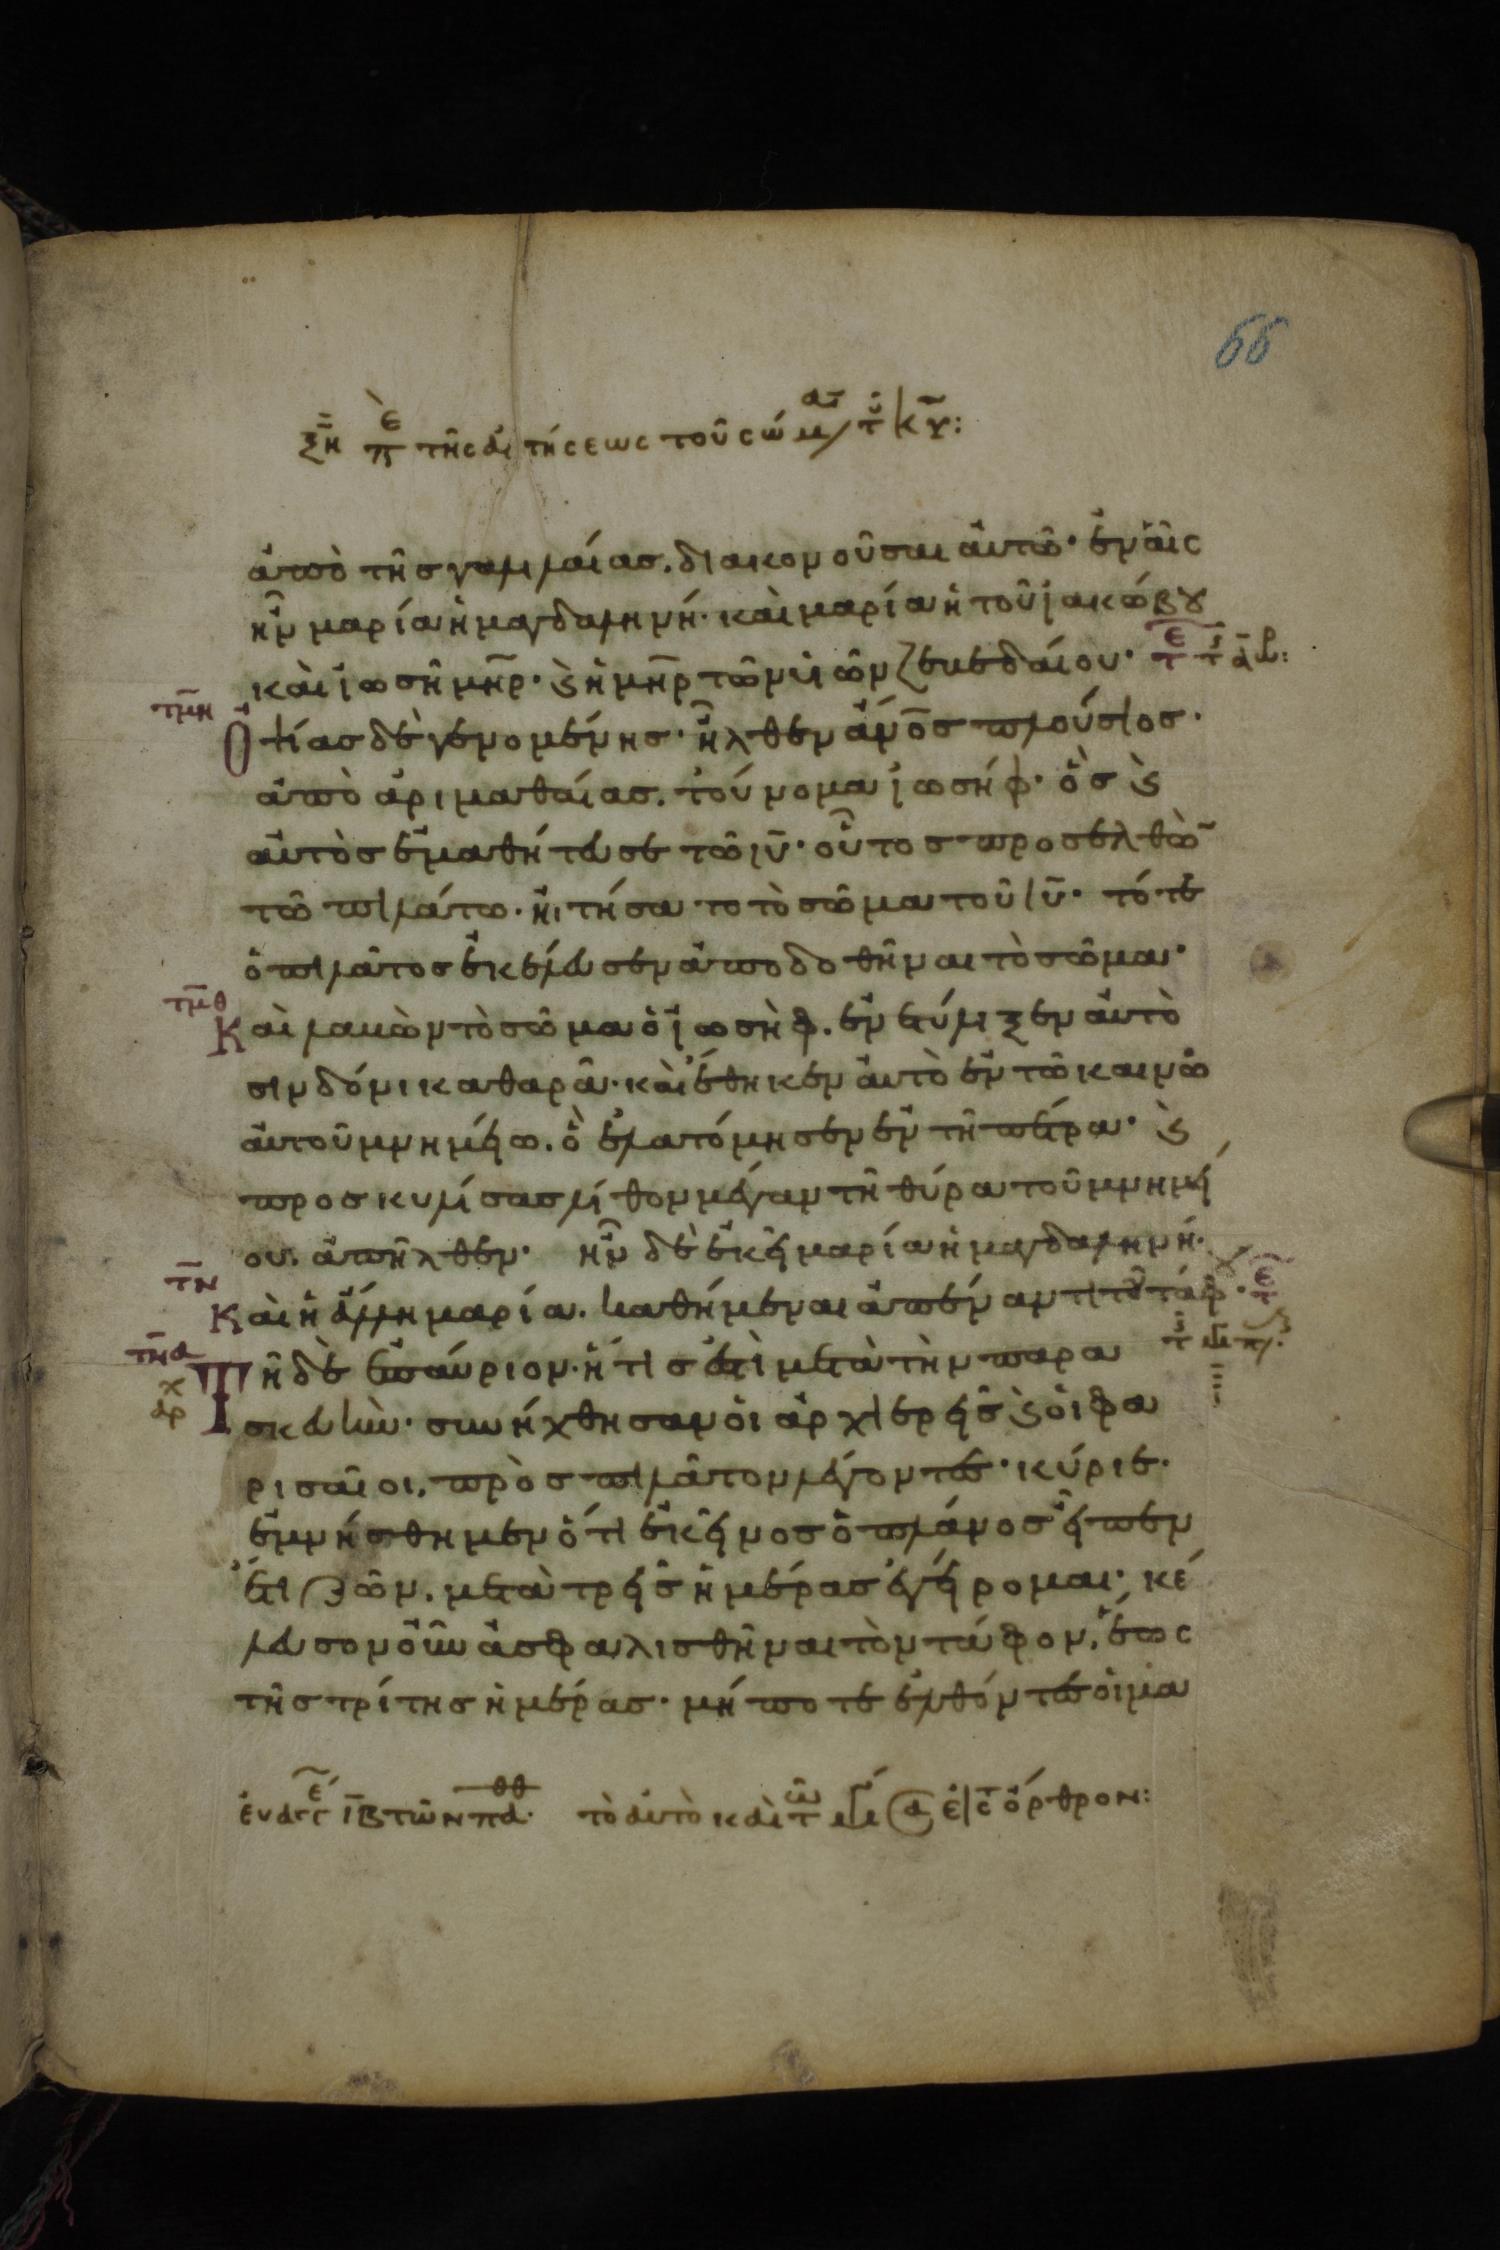 66
ξη̄ πε τῆς αἰτήσεως τοῦ σώμ(ατ) τ κῡ:
ἀπὸ τῆς γαλιλαίας. διακονοῦσαι αὐτῶ· ἐν αἷς
ἦν μαρία ἡ μαγδαληνή· καὶ μαρία ἡ τοῦ ἰακώβου
καὶ ἰωσῆ μη̄ρ· ϗ ἡ μη̄ρ τῶν υἱῶν ζεβεδαίου·
τμη
Ὀψίας δὲ γενομένης· ἦλθεν ἄν̄ος πλούσιος·
ἀπὸ ἀριμαθαίας. τούνομα ἰωσήφ· ὃς ϗ
αὐτὸς ἐμαθήτευσε τῶ ιῡ· οὗτος προσελθὼ̄
τῶ πιλάτω. ἠιτήσατο τὸ σῶμα τοῦ ιῡ· τότε
ὁ πιλᾶτος ἐκέλευσεν ἀποδοθῆναι τὸ σῶμα·
τμθ
Καὶ λαβὼν τὸ σῶμα ὁ ἰωσὴφ. ἐνετύλιξεν αὐτὸ
σινδόνι καθαρᾶ· καὶ ἔθηκεν αὐτὸ ἐν τῶ καινῶ
αὐτοῦ μνημείω. ὃ ἐλατόμησεν ἐν τῆ πέτρα· ϗ
προσκυλίσας λίθον μέγαν τῆ θύρα τοῦ μνημεί
ου. ἀπῆλθεν· ἦν δὲ ἐκεῖ μαρία ἡ μαγδαληνή·
τν
Καὶ ἡ ἄλλη μαρία. καθήμεναι ἀπέναντι τοῦ τάφ·
τνα
Τῆ δὲ ἐπαύριον· ἥτις ἐστὶ μετὰ τὴν παρα
σκευὴν· συνήχθησαν οἱ ἀρχιερεῖς ϗ οἱ φα
ρισαῖοι. πρὸς πιλᾶτον λέγοντες· κύριε·
ἐμνήσθημεν ὅτι ἐκεῖνος ὁ πλάνος εἶπεν
ἔτι ζῶν. μετὰ τρεῖς ἡμέρας ἐγείρομαι· κέ
λευσον οὖν ἀσφαλισθῆναι τὸν τάφον. ἕως
τῆς τρίτης ἡμέρας· μήποτε ἐλθόντες οἱ μα
ιβ τῶν παθθ. τὸ αὐτὸ καὶ τ ω με α εἰς τ ὄρθρον: